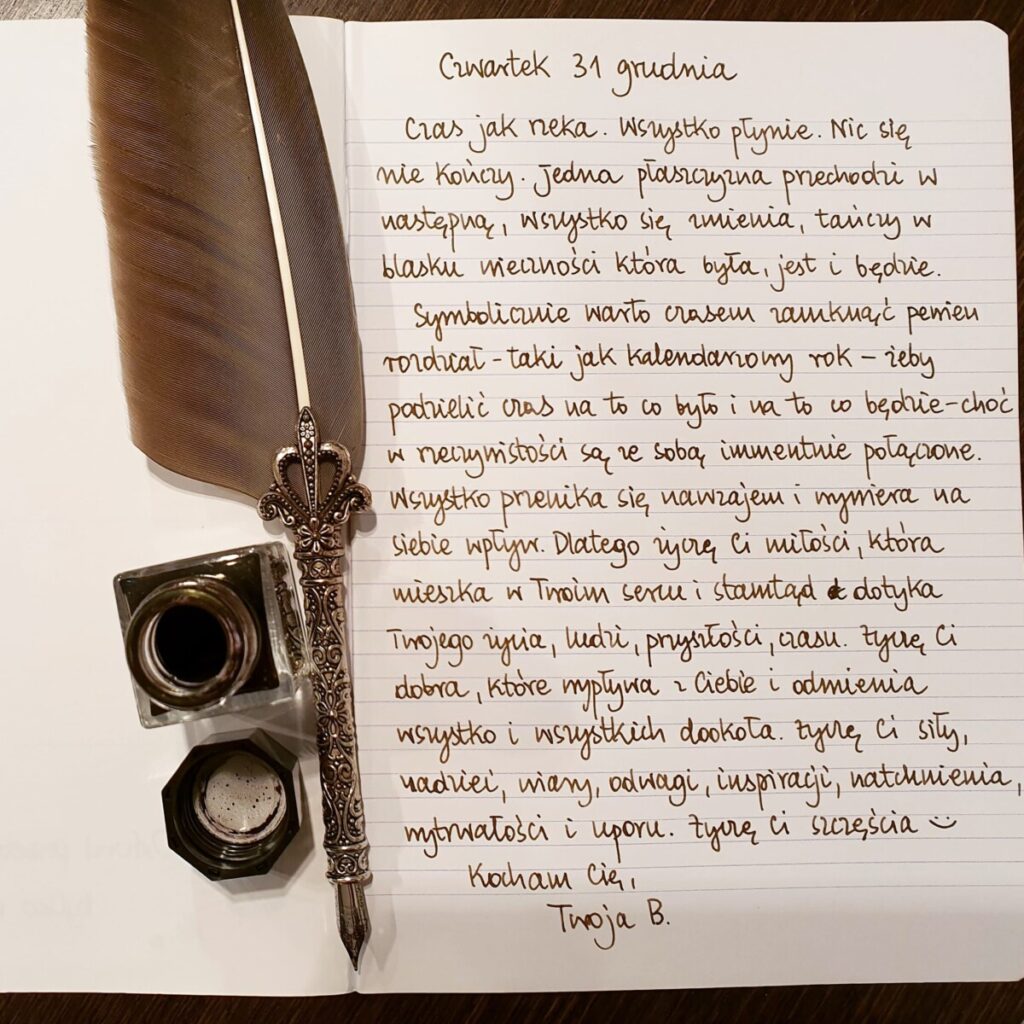 Czwartek 31 grudnia
Czas jak rzeka. Wszystko płynie. Nic się
nie kończy. Jedna płaszczyzna przechodzi w
następną, wszystko się zmienia, tańczy w
blasku wieczności która była, jest i będzie.
Symbolicznie warto czasem zamknąć pewien
rozdział - taki jak kalendarzowy rok - żeby
podzielić czas na to co było i na to co będzie - choć
w rzeczywistości są ze sobą immentnie połączone.
Wszystko przenika się nawzajem i wywiera na
siebie wpływ. Dlatego życzę Ci miłości, która
mieszka w Twoim sercu i stamtąd dotyka
Twojego życia, ludzi, przyszłości, czasu. Życzę Ci
dobra, które wypływa z Ciebie i odmienia
wszystko i wszystkich dookoła. Życzę Ci siły,
nadziei, wiary, odwagi, inspiracji, natchnienia,
wytrwałości i uporu. Życzę Ci szczęścia :)
Kocham Cię,
Twoja B.